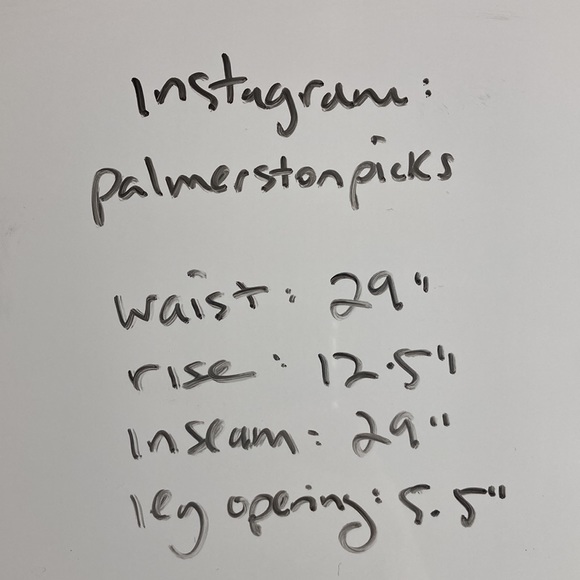 Instagram:
palmerstonpicks
waist: 29"
rise: 12.5"
Inseam: 29"
leg opening: 5.5"